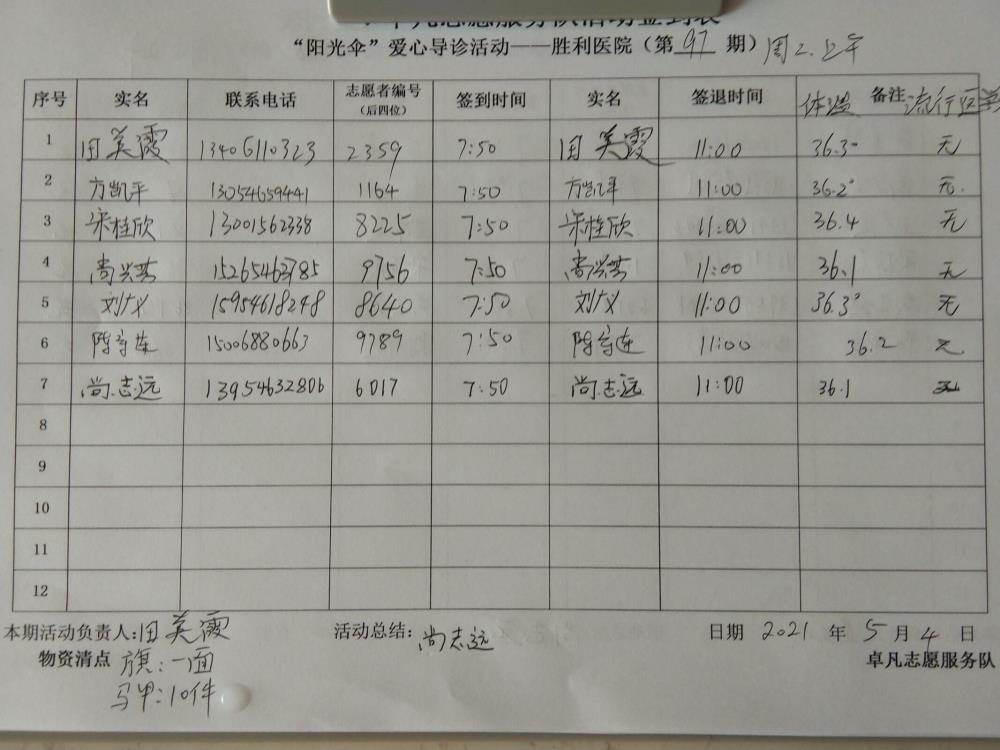 卓凡志愿服务队活动签到表
“阳光伞”爱心导诊活动——胜利医院（第 97 期）周2.上午
序号 实名 联系电话 志愿者编号（后四位） 签到时间 实名 签退时间 体温 备注 流行区
1 田美霞 13406110323 2359 7:50 田美霞 11:00 36.3° 无
2 方凯平 13054659441 1164 7:50 方凯平 11:00 36.2° 无.
3 宋桂欣 13001562338 8225 7:50 宋桂欣 11:00 36.4 无
4 尚兴芬 15265463785 9756 7:50 尚兴芬 11:00 36.1 无
5 刘义 15954618248 8640 7:50 刘义 11:00 36.3° 无
6 15006880663 9789 7:50 11:00 36.2 无
7 尚志远 13954632806 6017 7:50 尚志远 11:00 36.1 无
8
9
10
11
12
本期活动负责人:田美霞 活动总结: 尚志远 日期 2021 年 5 月 4 日
物资清点 旗：一面 卓凡志愿服务队
马甲：10件